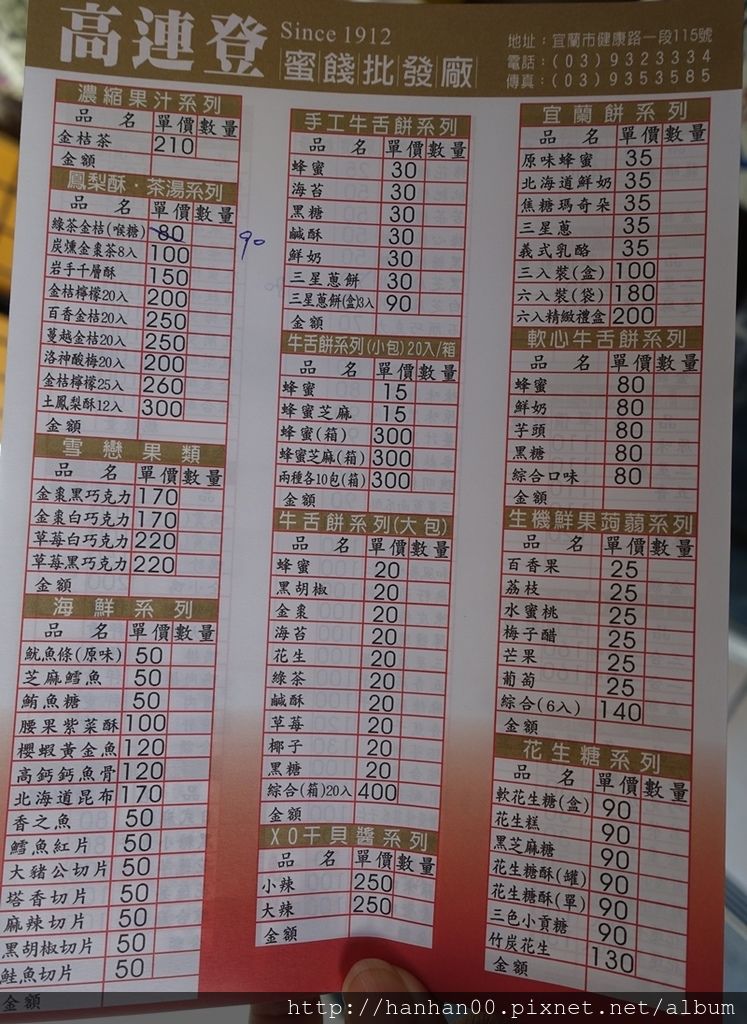 高連登
Since 1912
蜜餞批發廠
地址：宜蘭市健康路一段115號
電話：(03)9323334
傳真：(03)9353585
濃縮果汁系列
品 名 單價 數量
金桔茶 210
金額
鳳梨酥・茶湯系列
品 名 單價 數量
綠茶金桔(喉糖) 80 90
炭燻金棗茶8入 100
岩手千層酥 150
金桔檸檬20入 200
百香金桔20入 250
蔓越金桔20入 250
洛神酸梅20入 200
金桔檸檬25入 260
土鳳梨酥12入 300
金額
雪戀果類
品 名 單價 數量
金棗黑巧克力 170
金棗白巧克力 170
草莓白巧克力 220
草莓黑巧克力 220
金額
海鮮系列
品 名 單價 數量
魷魚條(原味) 50
芝麻鱈魚 50
鮪魚糖 50
腰果紫菜酥 100
櫻蝦黃金魚 120
高鈣鈣魚骨 120
北海道昆布 170
香之魚 50
鱈魚紅片 50
大豬公切片 50
塔香切片 50
麻辣切片 50
黑胡椒切片 50
鮭魚切片 50
金額
手工牛舌餅系列
品 名 單價 數量
蜂蜜 30
海苔 30
黑糖 30
鹹酥 30
鮮奶 30
三星蔥餅 30
三星蔥餅(盒)3入 90
金額
牛舌餅系列(小包)20入/箱
品 名 單價 數量
蜂蜜 15
蜂蜜芝麻 15
蜂蜜(箱) 300
蜂蜜芝麻(箱) 300
兩種各10包(箱) 300
金額
牛舌餅系列(大包)
品 名 單價 數量
蜂蜜 20
黑胡椒 20
金棗 20
海苔 20
花生 20
綠茶 20
鹹酥 20
草莓 20
椰子 20
黑糖 20
綜合(箱)20入 400
金額
XO干貝醬系列
品 名 單價 數量
小辣 250
大辣 250
金額
宜蘭餅系列
品 名 單價 數量
原味蜂蜜 35
北海道鮮奶 35
焦糖瑪奇朵 35
三星蔥 35
義式乳酪 35
三入裝(盒) 100
六入裝(袋) 180
六入精緻禮盒 200
軟心牛舌餅系列
品 名 單價 數量
蜂蜜 80
鮮奶 80
芋頭 80
黑糖 80
綜合口味 80
金額
生機鮮果蒟蒻系列
品 名 單價 數量
百香果 25
荔枝 25
水蜜桃 25
梅子醋 25
芒果 25
葡萄 25
綜合(6入) 140
金額
花生糖系列
品 名 單價 數量
軟花生糖(盒) 90
花生糕 90
黑芝麻糖 90
花生糖酥(罐) 90
花生糖酥(單) 90
三色小貢糖 90
竹炭花生 130
金額
http://hanhan00.pixnet.net/album